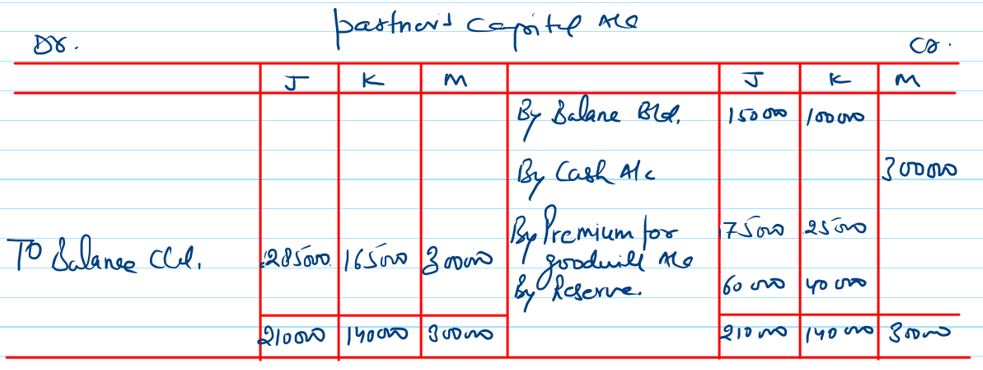 partner's Capital A/c
Dr. Cr.
J K M J K M
By Balane B/d. 150000 100000
By Cash A/c 300000
By Premium for 75000 25000
goodwill A/c
To Balance C/d. 285000 165000 300000
By Reserve. 60000 40000
210000 140000 300000 210000 140000 300000